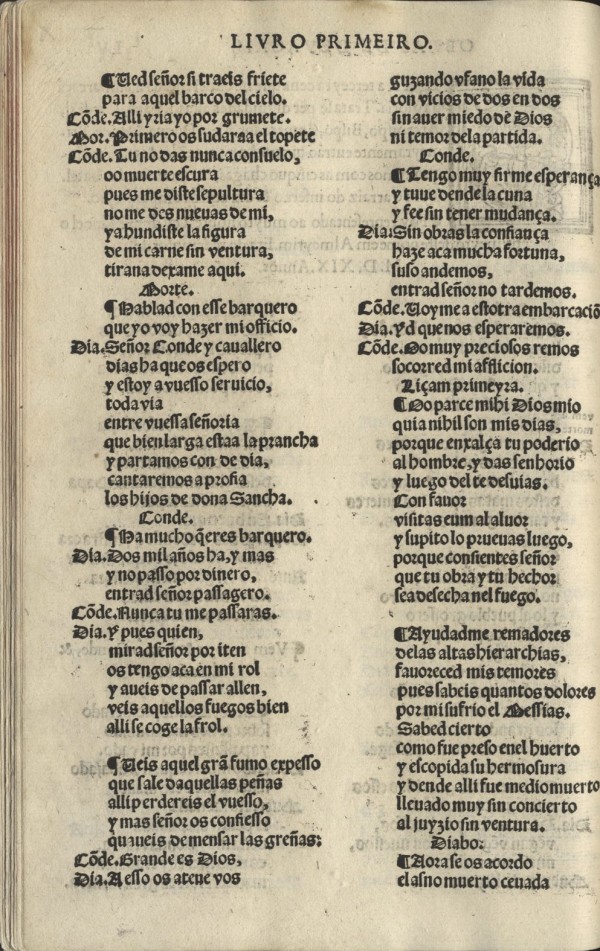 LIVRO PRIMEIRO.
¶Ued señor si traeis friete
para aquel barco del cielo.
Cõde. Alli yria yo por grumete.
Mor. Primero os sudaraa el topete
Cõde. Tu no das nunca consuelo,
oo muerte escura
pues me diste sepultura
no me des nueuas de mi,
ya hundiste la figura
de mi carne sin ventura,
tirana dexame aqui.
Morte.
¶Hablad con esse barquero
que yo voy hazer mi officio.
Dia. Señor Conde y cauallero
dias ha que os espero
y estoy a vuesso seruicio,
toda via
entre vuessa señoria
que bien larga estaa la prancha
y partamos con de dia,
cantaremos a profia
los hijos de dona Sancha.
Conde.
¶Ha mucho q̃ eres barquero.
Dia. Dos mil años ha, y mas
y no passo por dinero,
entrad señor passagero.
Cõde. Nunca tu me passaras.
Dia. Y pues quien,
mirad señor por iten
os tengo aca en mi rol
y aueis de passar allen,
veis aquellos fuegos bien
alli se coge la frol.
¶Ueis aquel grã fumo expesso
que sale daquellas peñas
alli perdereis el vuesso,
y mas señor os confiesso
qu aueis de mensar las greñas:
Cõde. Grande es Dios,
Dia. A esso os atene vos
guzando vfano la vida
con vicios de dos en dos
sin auer miedo dẽ Dios
ni temor dela partida.
Conde.
¶Tengo muy firme esperança
y tuue dende la cuna
y fee sin tener mudança.
Dia. Sin obras la confiança
haze aca mucha fortuna,
suso andemos,
entrad señor no tardemos.
Cõde. Uoy me a estotra embarcaciõ
Dia. Yd que nos esperaremos.
Cõde. Oo muy preciosos remos
socorred mi afflicion.
Liçam primeyra.
¶Oo parce mihi Dios mio
quia nihil son mis dias,
porque enxalça tu poderio
al hombre, y das senhorio
y luego del te desuias.
Con fauor
visitas eum al aluor
y supito lo prueuas luego,
porque consientes señor
que tu obra y tu hechor
sea desecha nel fuego.
¶Ayudadme remadores
delas altas hierarchias,
fauoreced mis temores
pues sabeis quantos dolores
por mi sufrio el Messias.
Sabed cierto
como fue preso enel huerto
y escopida su hermosura
y dende alli fue medio muerto
lleuado muy sin concierto
al juyzio sin ventura.
Diabo.
¶Aora se os acordo
el asno muerto ceuada